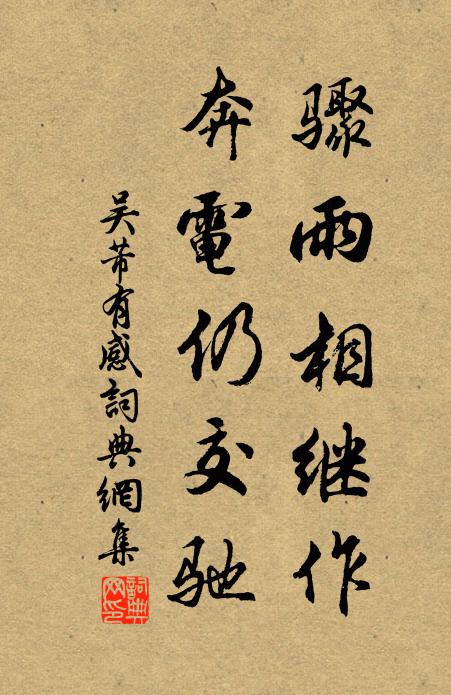 骤雨相继作
奔電仍交驰
吴芾有感詞典網集
詞典網印